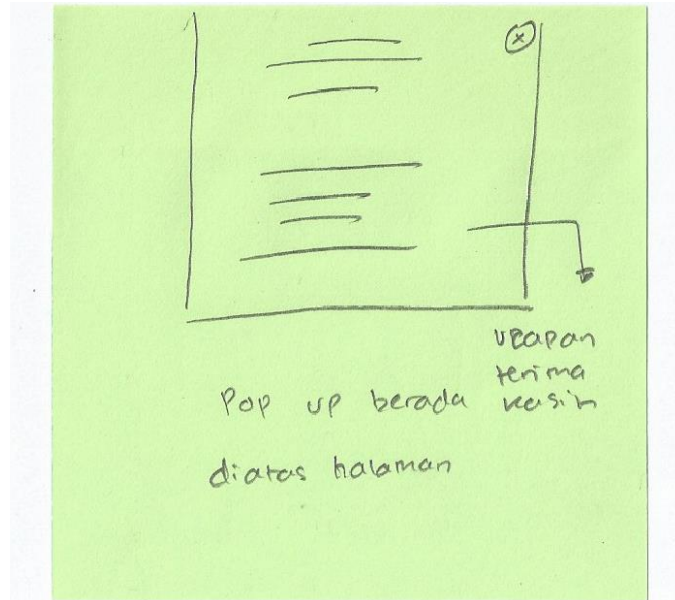 x
ucapan
terima
kasih
Pop up berada
diatas halaman